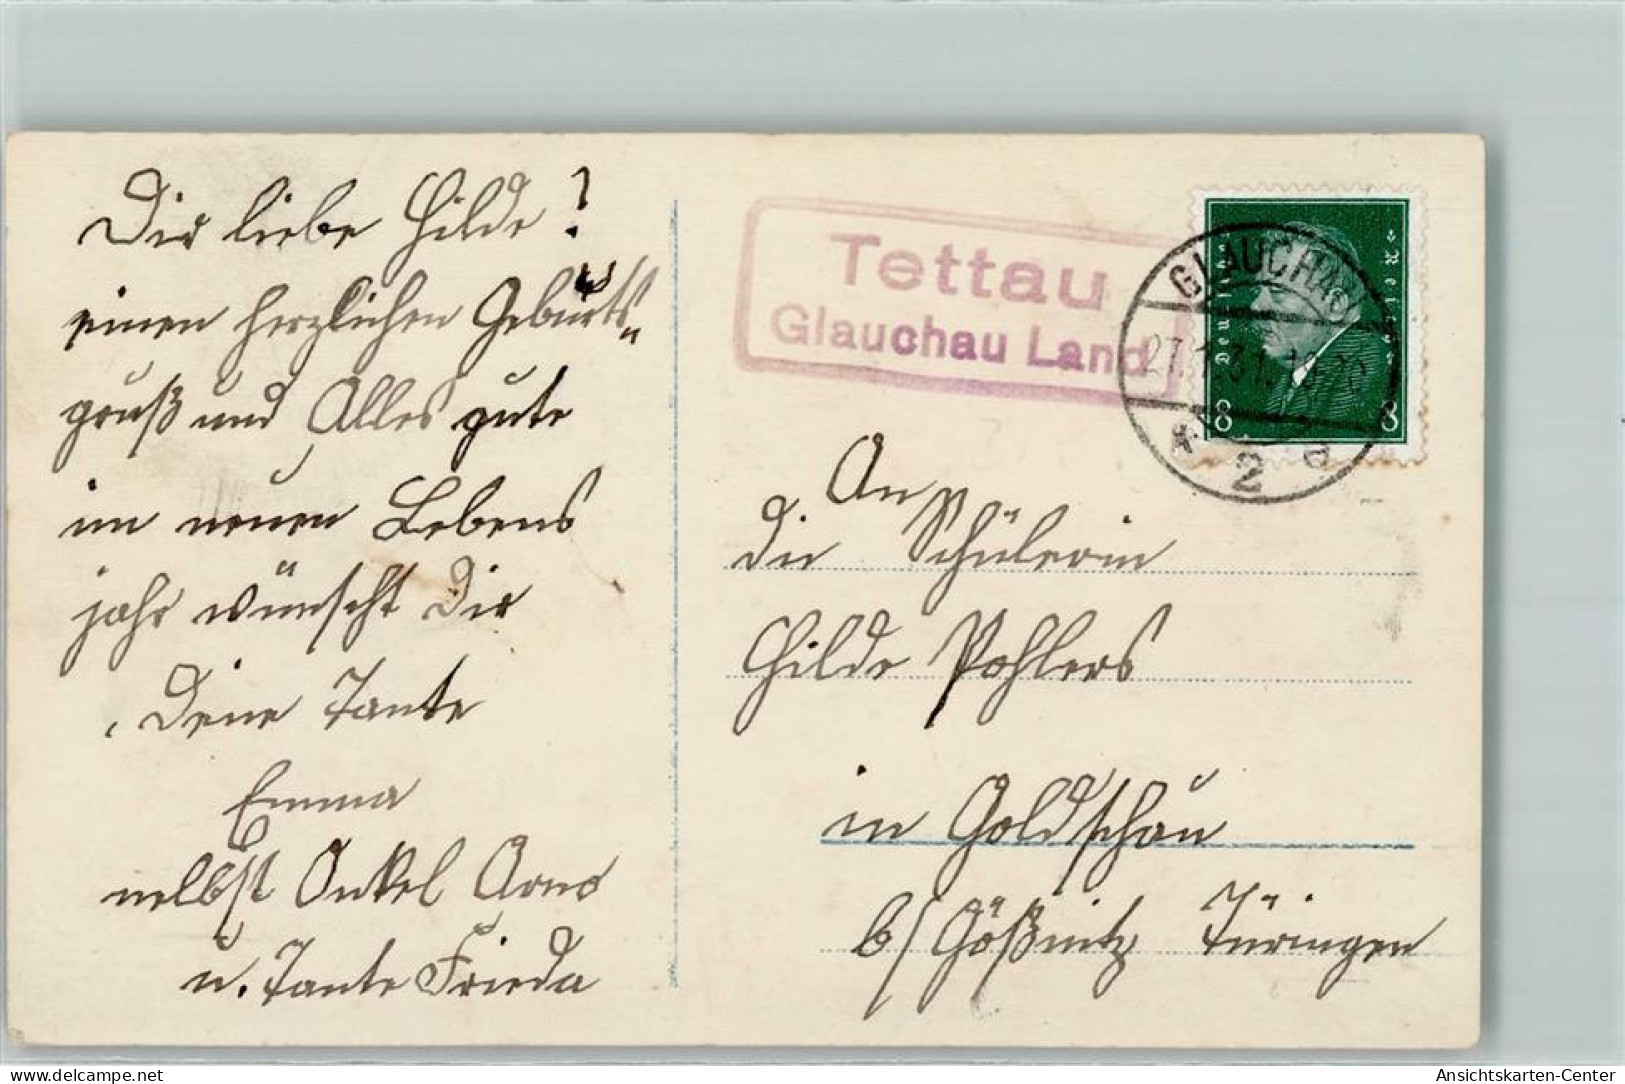 Dir liebe Hilde!
einen herzlichen Geburts„
gruß und Alles gute
im neuen Lebens
jahr wünscht Dir
Deine Tante
Emma
nelbst Onkel Arno
u. Tante Frieda
Tettau
Glauchau Land
GLAUCHAU
27.1.31.
2
Deutsches Reich
8 8
An
die Schülerin
Hilde Pohlers
in Goldschau
b/ Gößnitz Türingen
Ansichtskarten-Center
delcampe.net